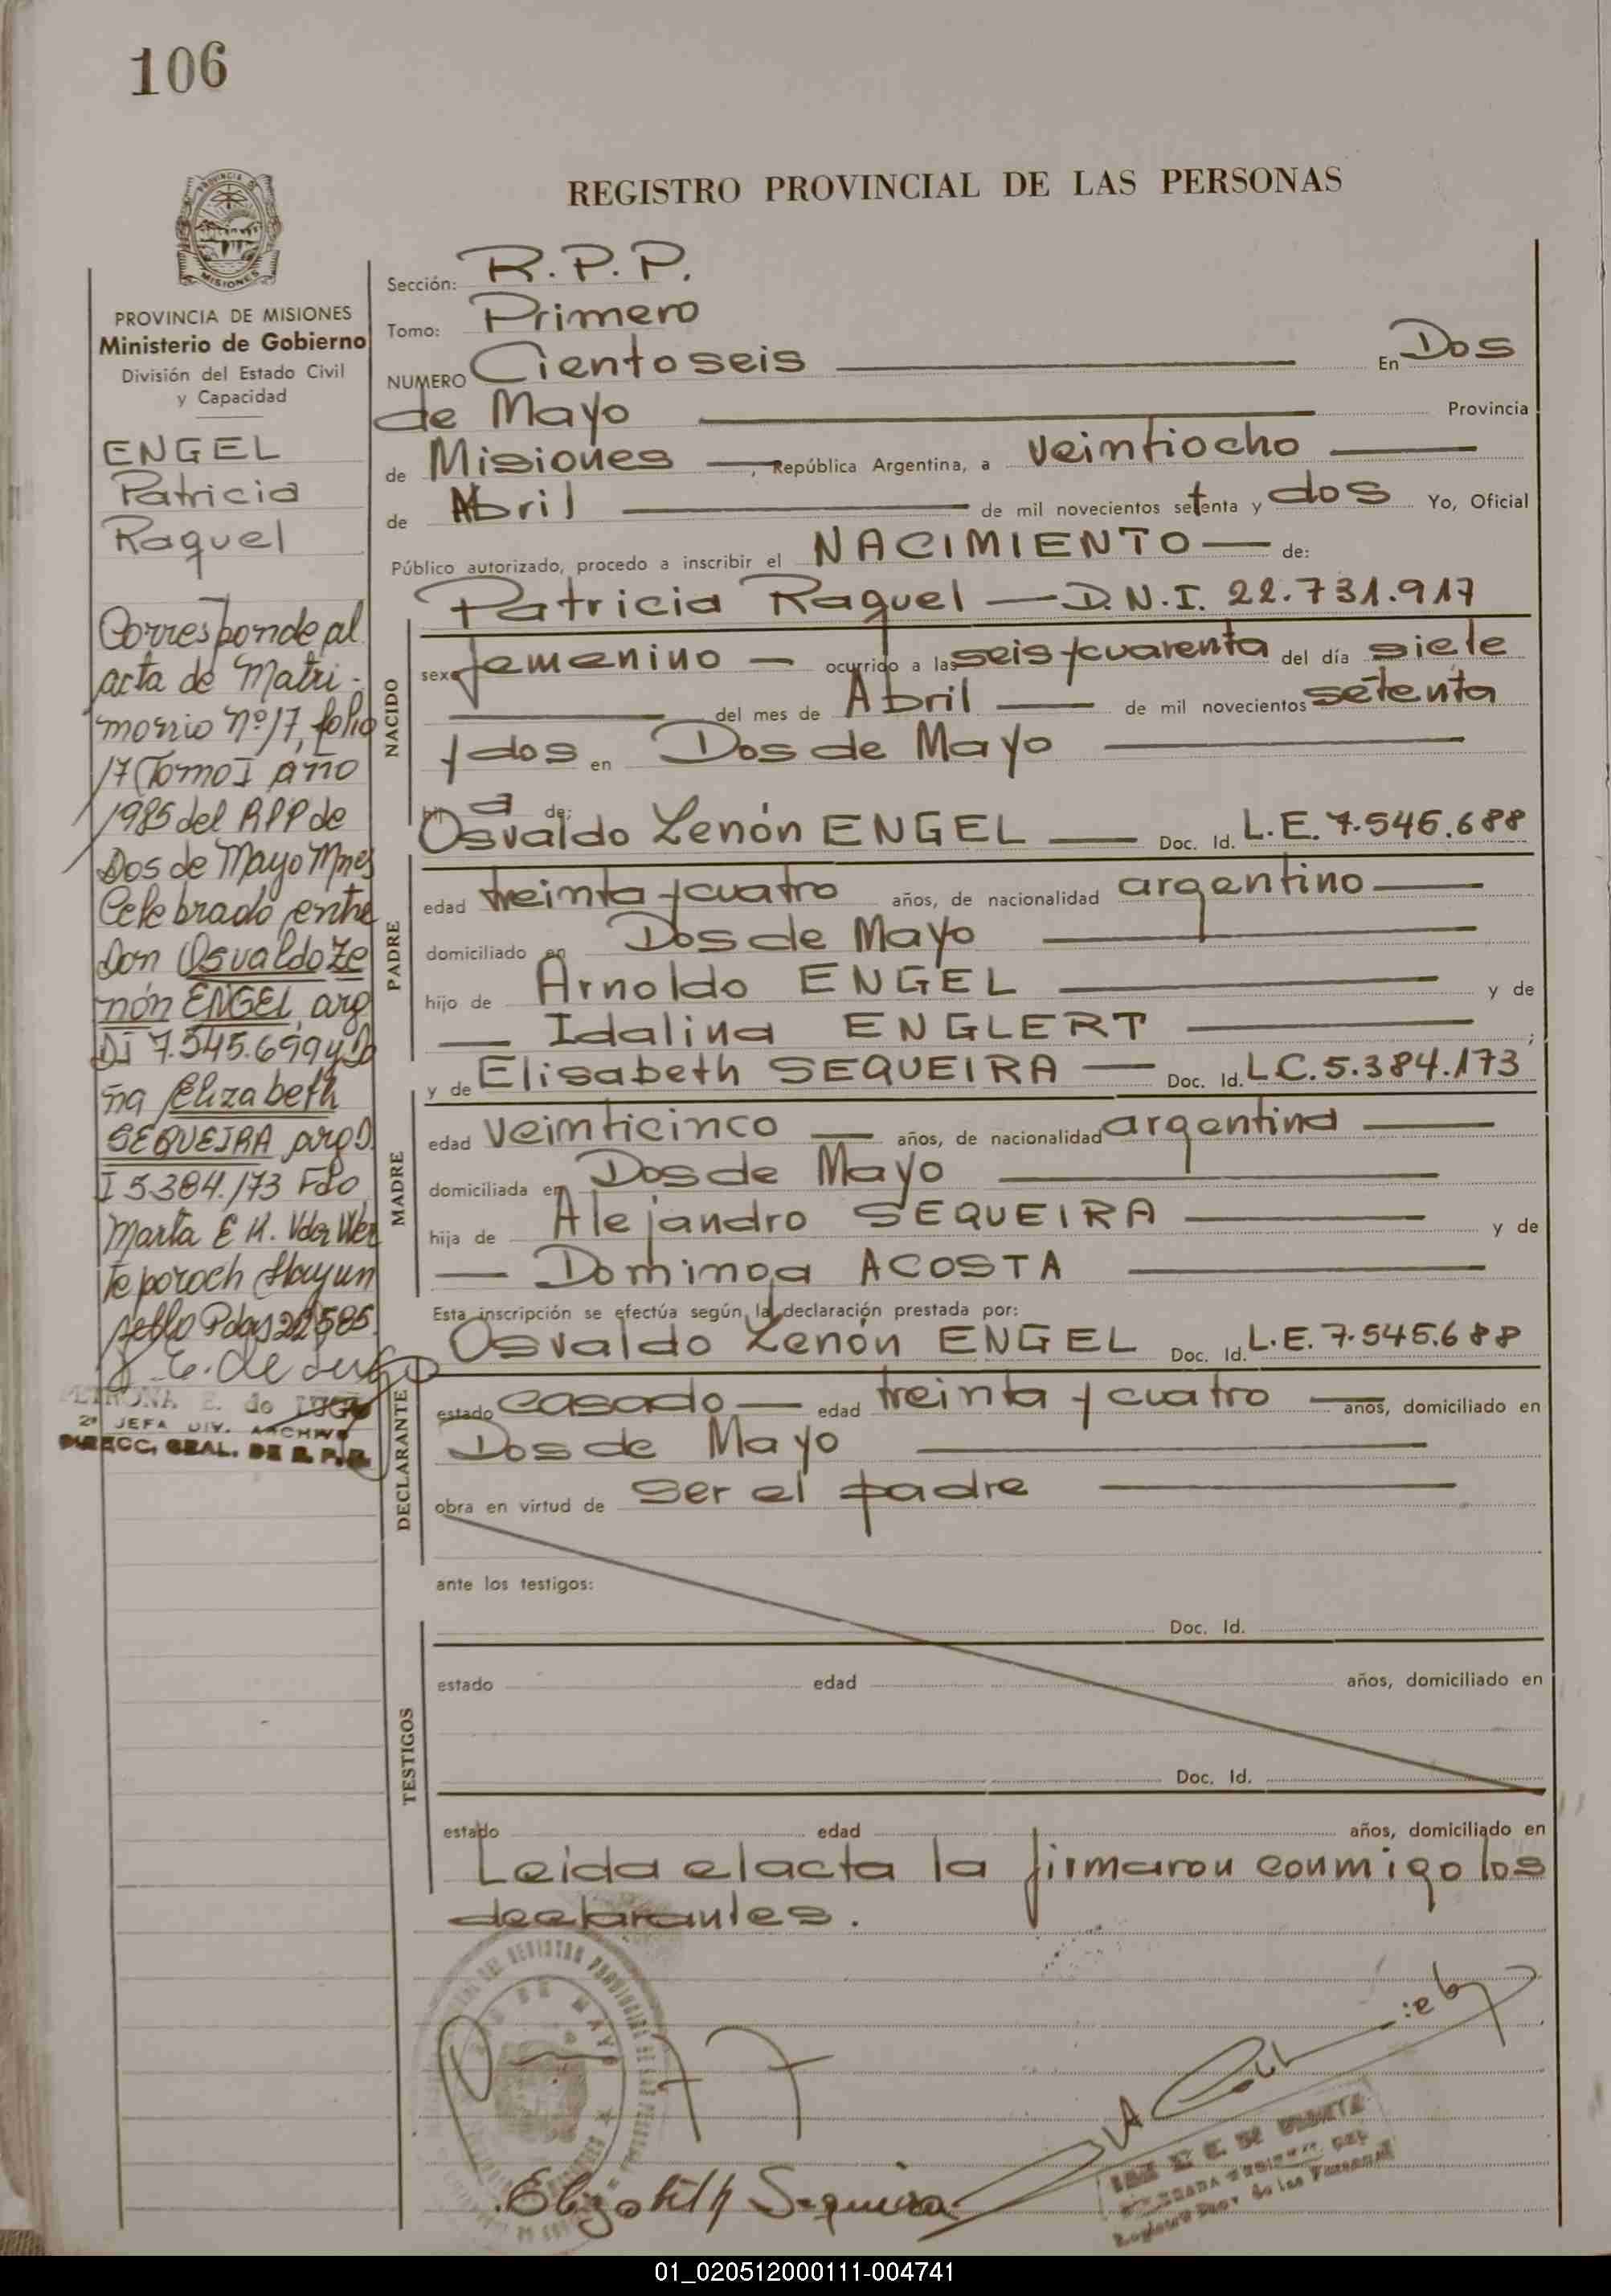 106
REGISTRO PROVINCIAL DE LAS PERSONAS
PROVINCIA DE MISIONES
Ministerio de Gobierno
División del Estado Civil
y Capacidad
ENGEL
Patricia
Raquel
Corresponde al
acta de Matri-
monio nº 17, folio
17 Tomo I año
1985 del RPP de
Dos de Mayo Mnes
Celebrado entre
Don Osvaldo Ze
nón ENGEL, arg
DI 7.545.699 y Do
ña Elizabeth
SEQUEIRA arg D.
I 5384.173 Fdo
Marta E H.
sello Pdas
PETRONA E. de LUGO
2ª JEFA DIV. ARCHIVO
DIRECC. GRAL. DE R. P. P.
Sección: R.P.P.
Tomo: Primero
NUMERO Ciento seis En Dos
de Mayo Provincia
de Misiones, República Argentina, a veintiocho
de Abril de mil novecientos setenta y dos Yo, Oficial
Público autorizado, procedo a inscribir el NACIMIENTO de:
Patricia Raquel — D.N.I. 22.731.917
NACIDO
sexo femenino — ocurrido a las seis y cuarenta del día siete
del mes de Abril de mil novecientos setenta
y dos en Dos de Mayo
hij a de:
Osvaldo Zenón ENGEL Doc. Id. L.E. 7.545.688
PADRE
edad treinta y cuatro años, de nacionalidad argentino
domiciliado en Dos de Mayo
hijo de Arnoldo ENGEL y de
— Idalina ENGLERT ;
y de Elisabeth SEQUEIRA — Doc. Id. L.C. 5.384.173
MADRE
edad veinticinco — años, de nacionalidad argentina
domiciliada en Dos de Mayo
hija de Alejandro SEQUEIRA y de
— Dominga ACOSTA
Esta inscripción se efectúa según la declaración prestada por:
Osvaldo Zenón ENGEL Doc. Id. L.E. 7.545.688
DECLARANTE
estado casado — edad treinta y cuatro — años, domiciliado en
Dos de Mayo
obra en virtud de ser el padre
ante los testigos:
Doc. Id.
TESTIGOS
estado edad años, domiciliado en
Doc. Id.
estado edad años, domiciliado en
Leida el acta la firmaron conmigo los
declarantes.
Elizabeth Sequeira
01_020512000111-004741